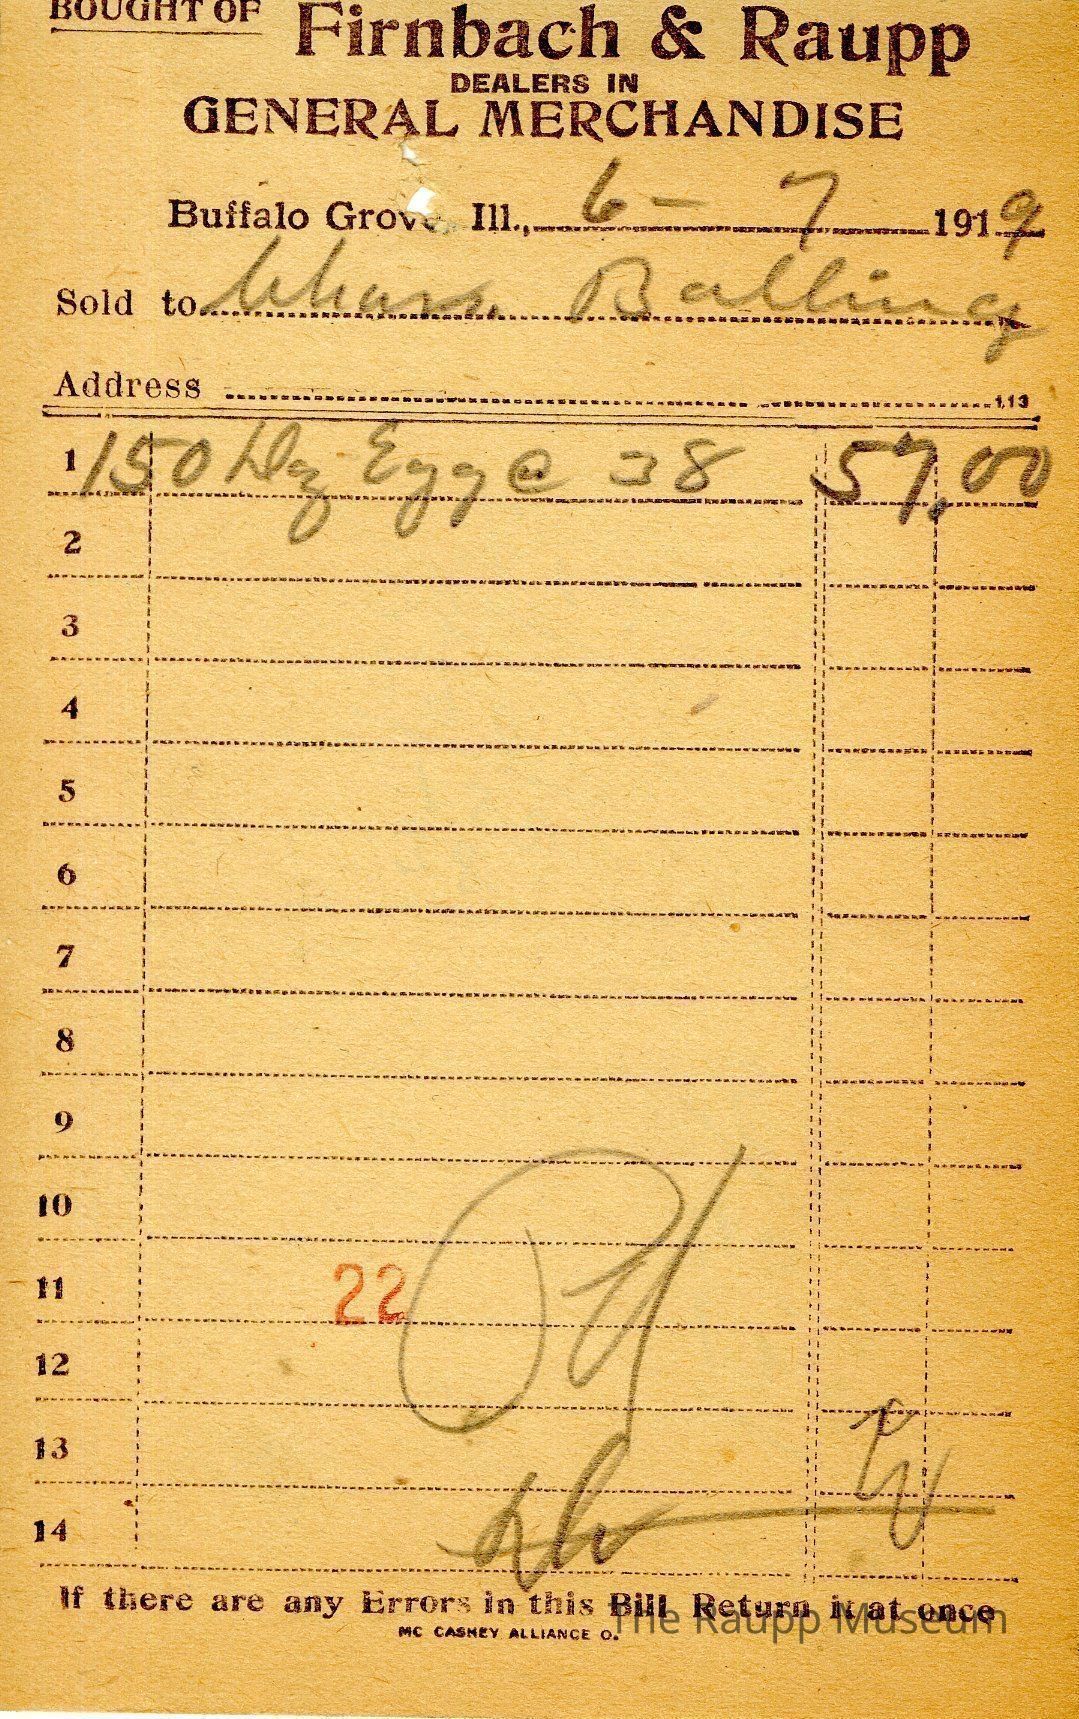 BOUGHT OF
Firnbach & Raupp
DEALERS IN
GENERAL MERCHANDISE
Buffalo Grove, Ill., 6 - 7 1919
Sold to Chas. Balling
Address
113
1 150 Dz Egg @ 38 57,00
2
3
4
5
6
7
8
9
10
11 22
12
13
14
If there are any Errors in this Bill Return it at once
MC CASKEY ALLIANCE O.
The Raupp Museum